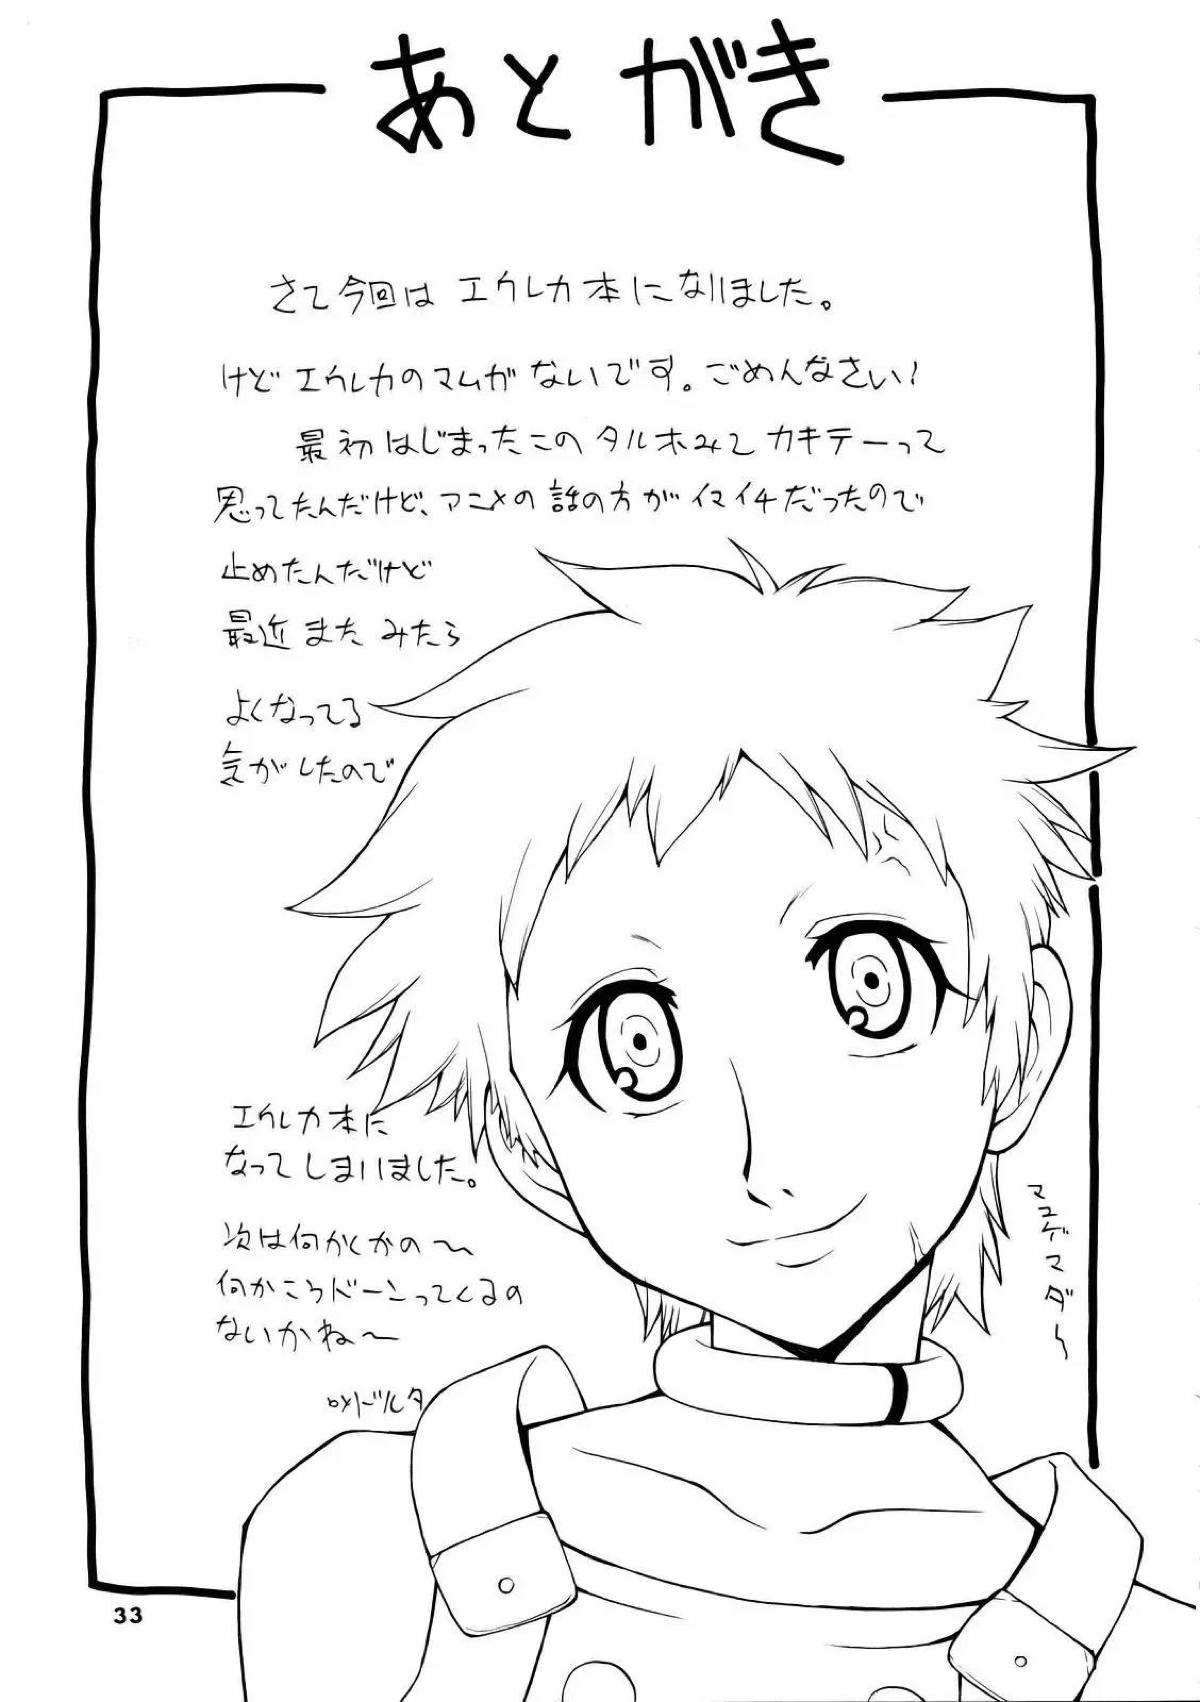 あとがき
さて今回は エウレカ本になりました。
けど エウレカのマムがないです。ごめんなさい!
最初はじまったこの タルホみて カキテーって
思ってたんだけど、アニメの話の方が イマイチだったので
止めたんだけど
最近 また みたら
よくなってる
気がしたので
エウレカ本に
なってしまいました。
次は何かくかの〜
何かころドーンってくるの
ないかね〜
マユゲマダ〜
33